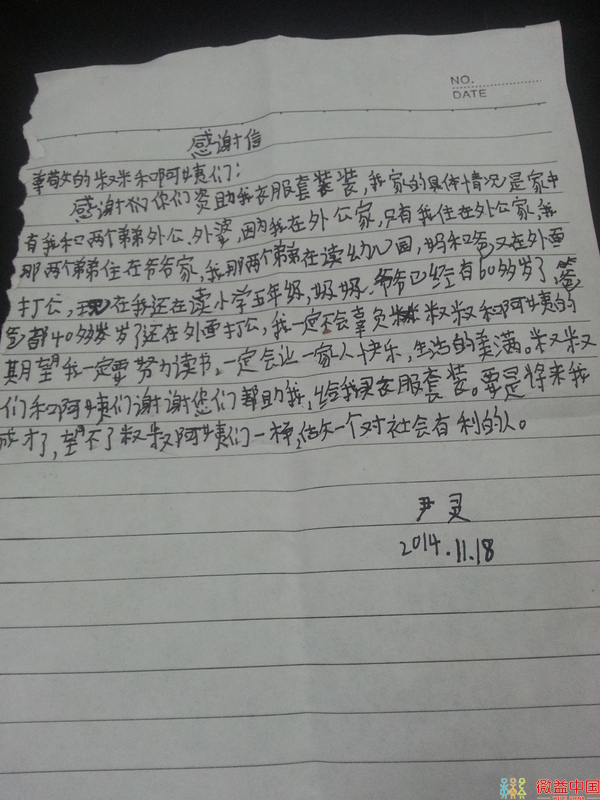 NO.
DATE
感谢信
尊敬的叔叔和啊姨们:
感谢你们资助我衣服套装,我家的具体情况是家中
有我和两个弟弟外公、外婆,因为我在外公家,只有我住在外公家,我
那两个弟弟住在爷爷家,我那两个弟弟在读幼儿园,妈和爸又在外面
打公,现在我还在读小学五年级,爷爷已经有60多岁了爸
爸都40多岁了还在外面打公,我一定不会辜负叔叔和啊姨的
期望我一定要努力读书,一定会让一家人快乐,生活的美满。叔叔
们和啊姨们谢谢您们帮助我,给我买衣服套装。要是将来我
成才了,望不了叔叔啊姨们一样,做一个对社会有利的人。
尹灵
2014.11.18
微益中国